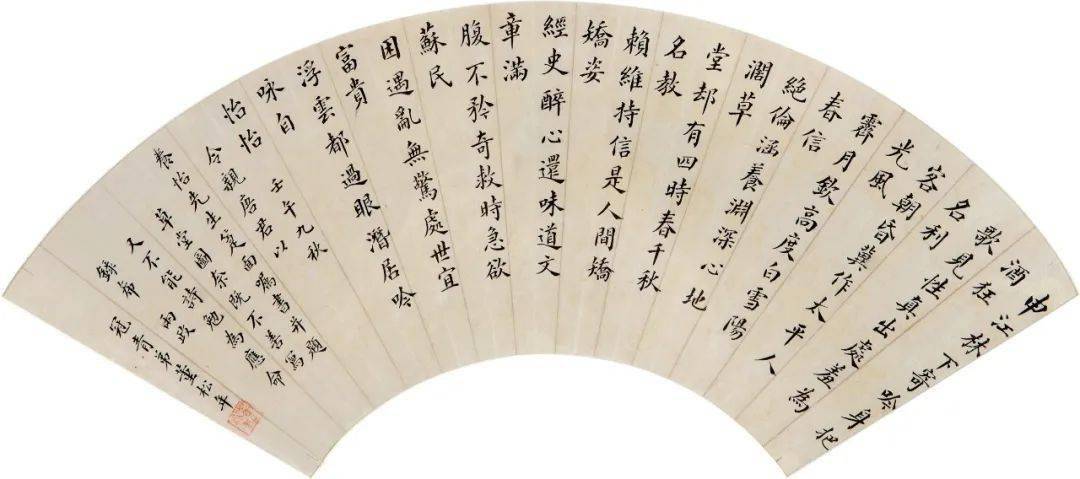 申江林下寄吟身把
酒狂
歌見性真出處羞為
名利
客朝昏冀作太平人
光風
霽月欽高度白雪陽
春信
絕倫涵養淵深心地
濶草
堂却有四時春千秋
名教
賴維持信是人間矯
矯姿
經史醉心還味道文
章滿
腹不矜奇救時急欲
蘇民
困遇亂無驚處世宜
富貴
浮雲都過眼潛居吟
咏自
怡怡
壬午九秋
令親唐君以
養怡先生箑面屬書并寫題
草堂圖奈既不善
又不能詩勉為應命
希兩政
冠青弟董松年